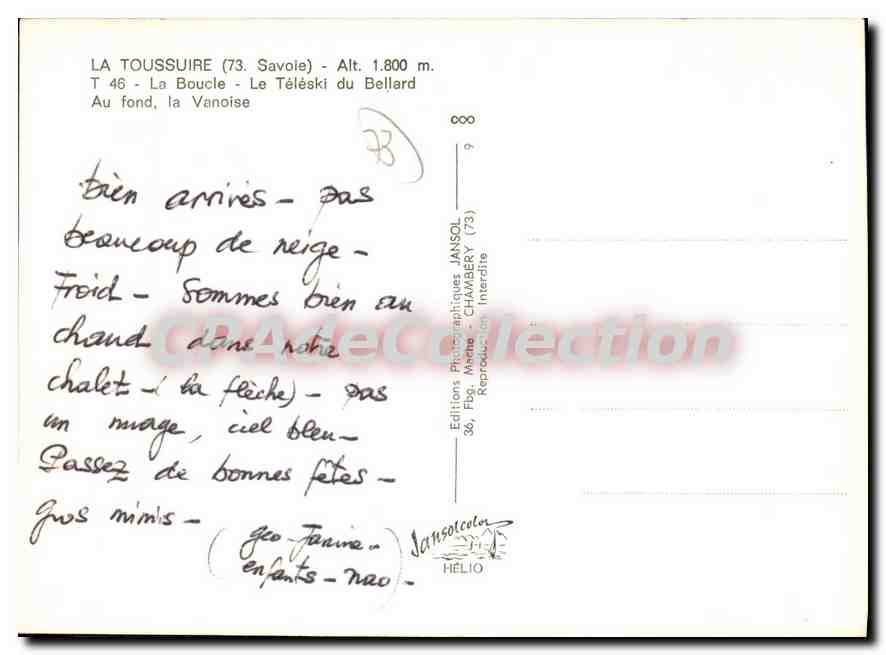 LA TOUSSUIRE (73. Savoie) - Alt. 1.800 m.
T 46 - La Boucle - Le Téléski du Bellard
Au fond, la Vanoise
73
bien arrivés - pas
beaucoup de neige -
Froid - Sommes bien au
chaud dans notre
chalet - (la flèche) - pas
un nuage, ciel bleu -
Passez de bonnes fêtes -
gros mimis -
(geo - Janine -
enfants - nao) -
Editions Photographiques JANSOL
36, Fbg. Maché - CHAMBÉRY (73)
Reproduction Interdite
9
Jansolcolor
HÉLIO
CPAdeCollection